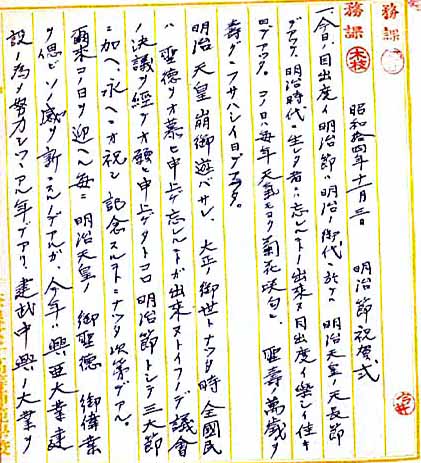 務課
務課
昭和拾四年十一月三日 明治節祝賀式
一、今日ハ目出度イ明治節、明治ノ御代ニ於テハ 明治天皇ノ天長節
デアツタ。明治時代ニ生レタ者ニハ忘レルコトノ出来ヌ目出度イ楽シイ佳キ
日デアツタ。コノ日ハ毎年天気モヨク菊花咲匂ヒ、聖壽萬歳ヲ
壽グニフサハシイ日デアツタ。
明治天皇崩御遊バサレ、大正ノ御世トナツタ時全國民
ハ 聖徳ヲオ慕ヒ申上ゲ忘レルコトガ出来ヌトイフノデ議會
ノ決議ヲ経テオ願ヒ申上ゲタトコロ 明治節トシテ三大節
ニ加ヘ永ヘニオ祝ヒ記念スルコトニナツタ次第デアル。
爾来コノ日ヲ迎ヘル毎ニ 明治天皇ノ御聖徳 御偉業
ヲ偲ビソノ感ヲ新ニスルノデアルガ、今年ハ興亜大業建
設ノ為メ努力シツツアル年デアリ、建武中興ノ大業ヲ